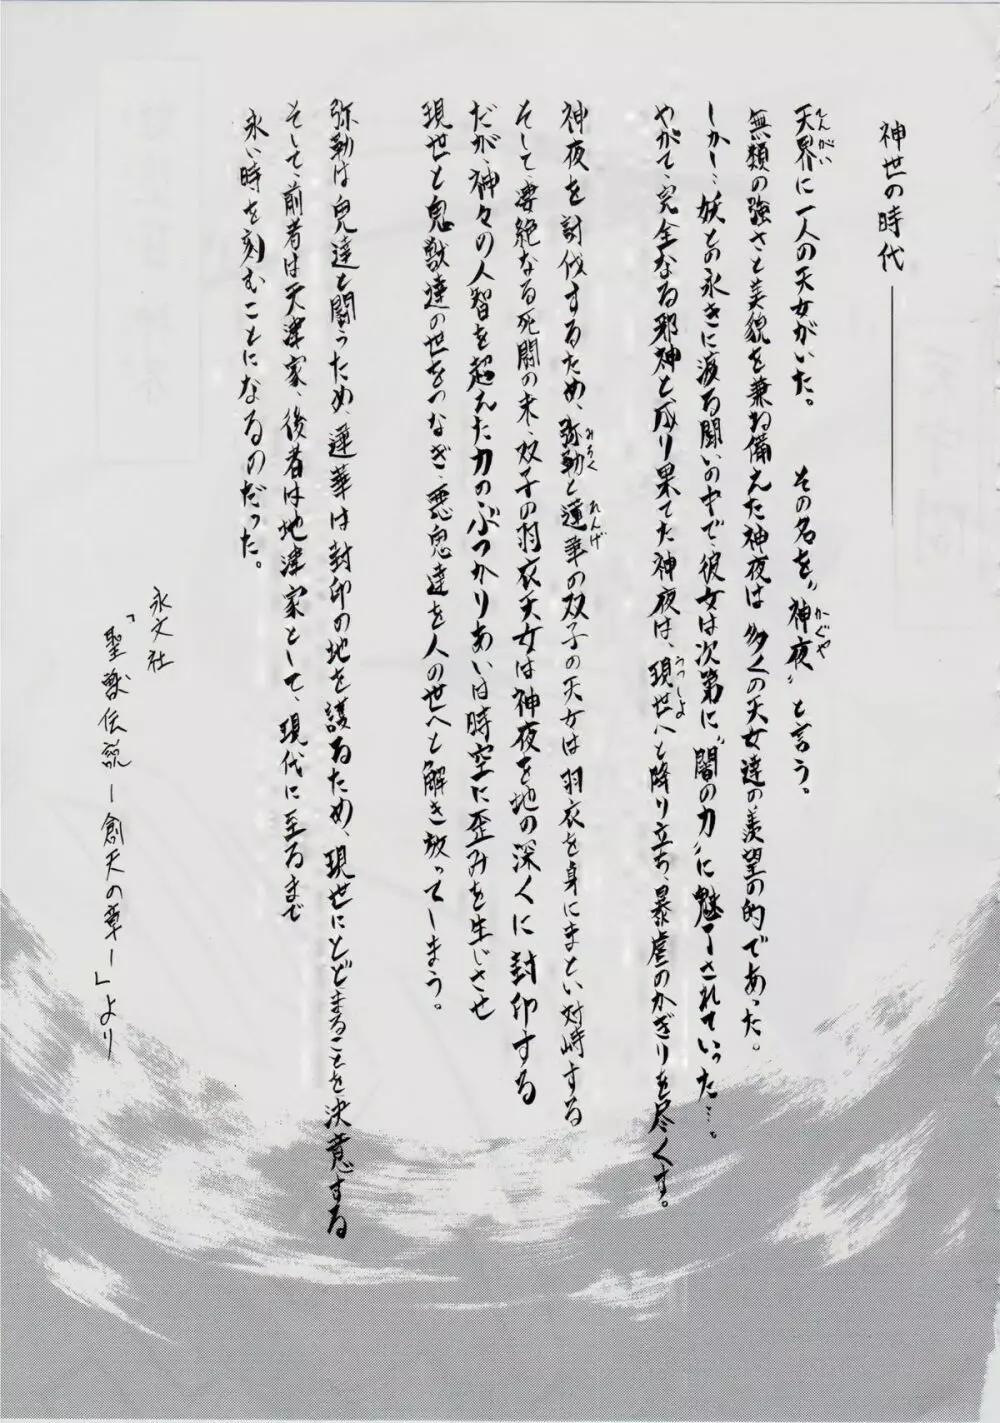 神世の時代――――
天界に一人の天女がいた。　その名を〝神夜〟と言う。
無類の強さと美貌を兼ね備えた神夜は多くの天女達の羨望の的であった。
しかし…妖との永きに渡る闘いの中で、彼女は次第に〝闇の力〟に魅了されていった…。
やがて、完全なる邪神と成り果てた神夜は、現世へと降り立ち、暴虐のかぎりを尽くす。
神夜を討伐するため、弥勒と蓮華の双子の天女は羽衣を身にまとい対峙する
そして、凄絶なる死闘の末、双子の羽衣天女は神夜を地の深くに封印する
だが、神々の人智を超えた力のぶつかりあいは時空に歪みを生じさせ
現世と鬼獣達の世をつなぎ、悪鬼達を人の世へと解き放ってしまう。
弥勒は鬼達と闘うため、蓮華は封印の地を護るため、現世にとどまることを決意する
そして、前者は天津家、後者は地津家として、現代に至るまで
永い時を刻むことになるのだった。
永文社
「聖獣伝説ー創天の章ー」より
てんがい
かぐや
うつしよ
みろく
れんげ